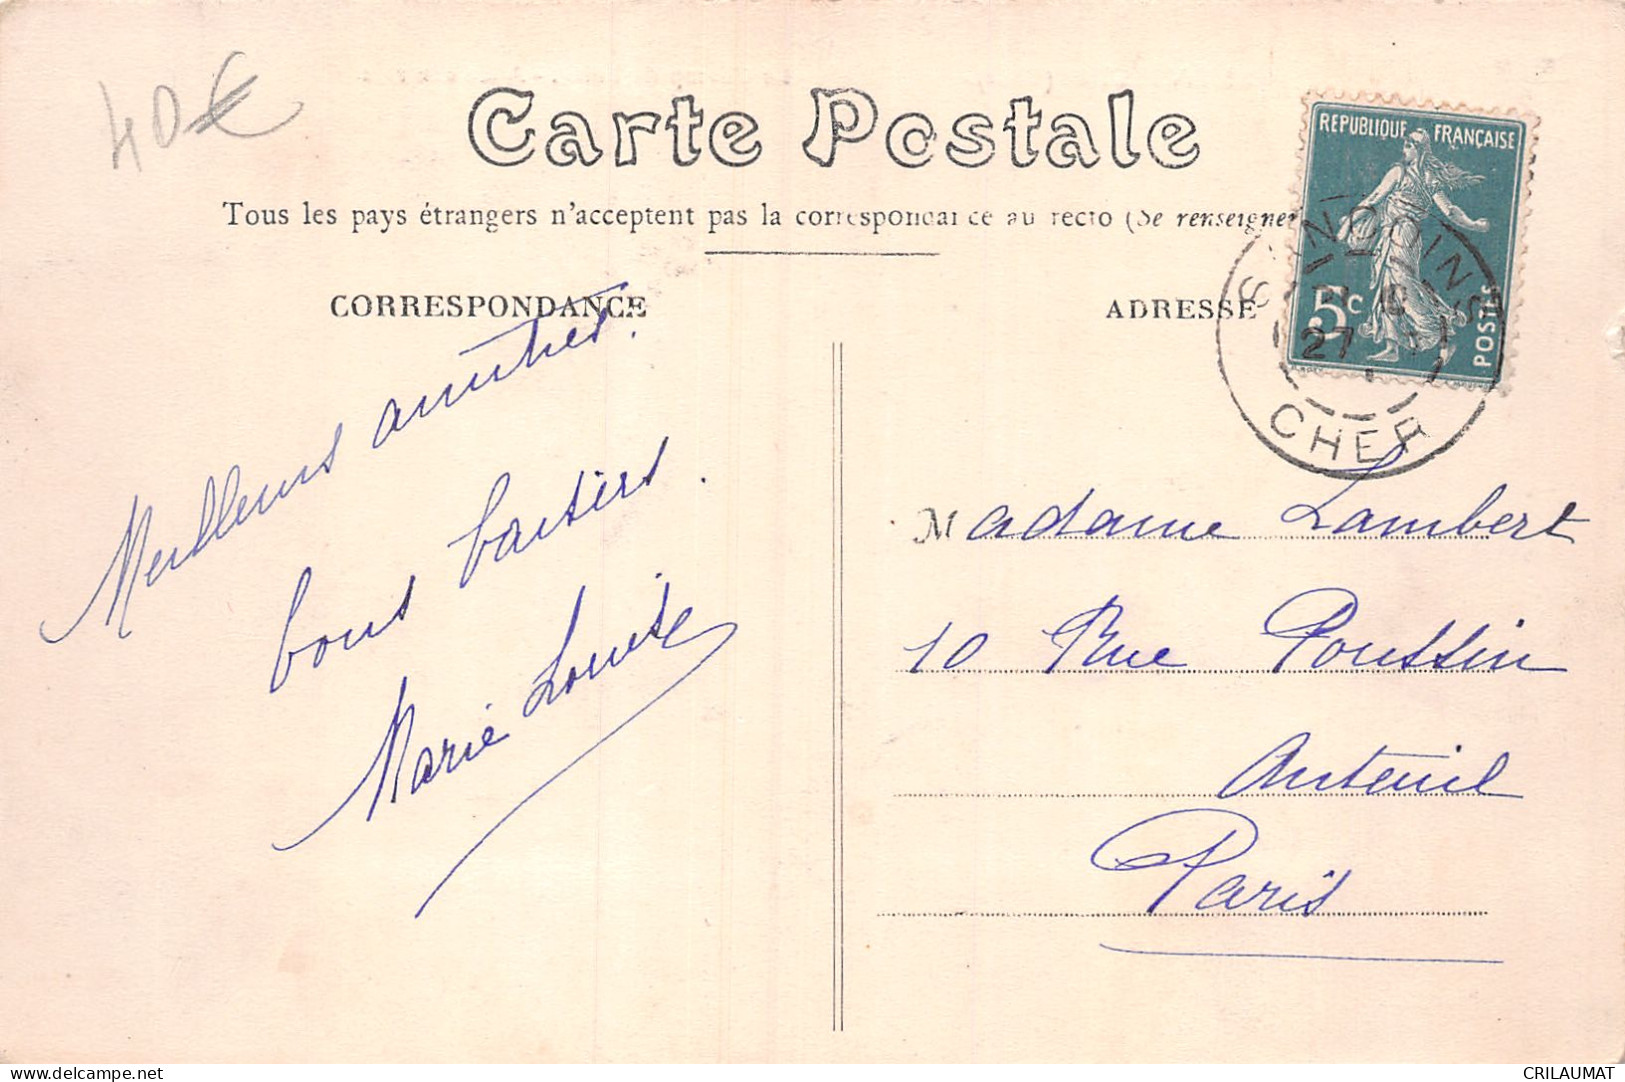 40€
Carte Postale
Tous les pays étrangers n'acceptent pas la correspondance au recto (Se renseigner
CORRESPONDANCE
ADRESSE
REPUBLIQUE FRANÇAISE
5c
POSTES
SANCOINS
27
CHER
Meilleurs amitiés.
bons baisers.
Marie Louise
Madame Lambert
10 Rue Poussin
Auteuil
Paris
delcampe.net
CRILAUMAT